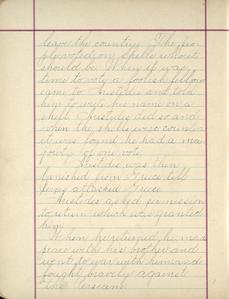 leave the country. The peo-
ple voted on shells who it
should be. When it was
time to vote a foolish fellow
came to Aristides and told
him to write his name on a
shell. Aristides did so and
when the shells were counted
it was found he had a ma-
jority of one vote.
Aristides was then
banished from Greece till
attacked Greece
Aristides asked permission
to return which was granted
him.
When he returned he made
peace with his brother and
went to war with him and
fought bravely against
the Persians.